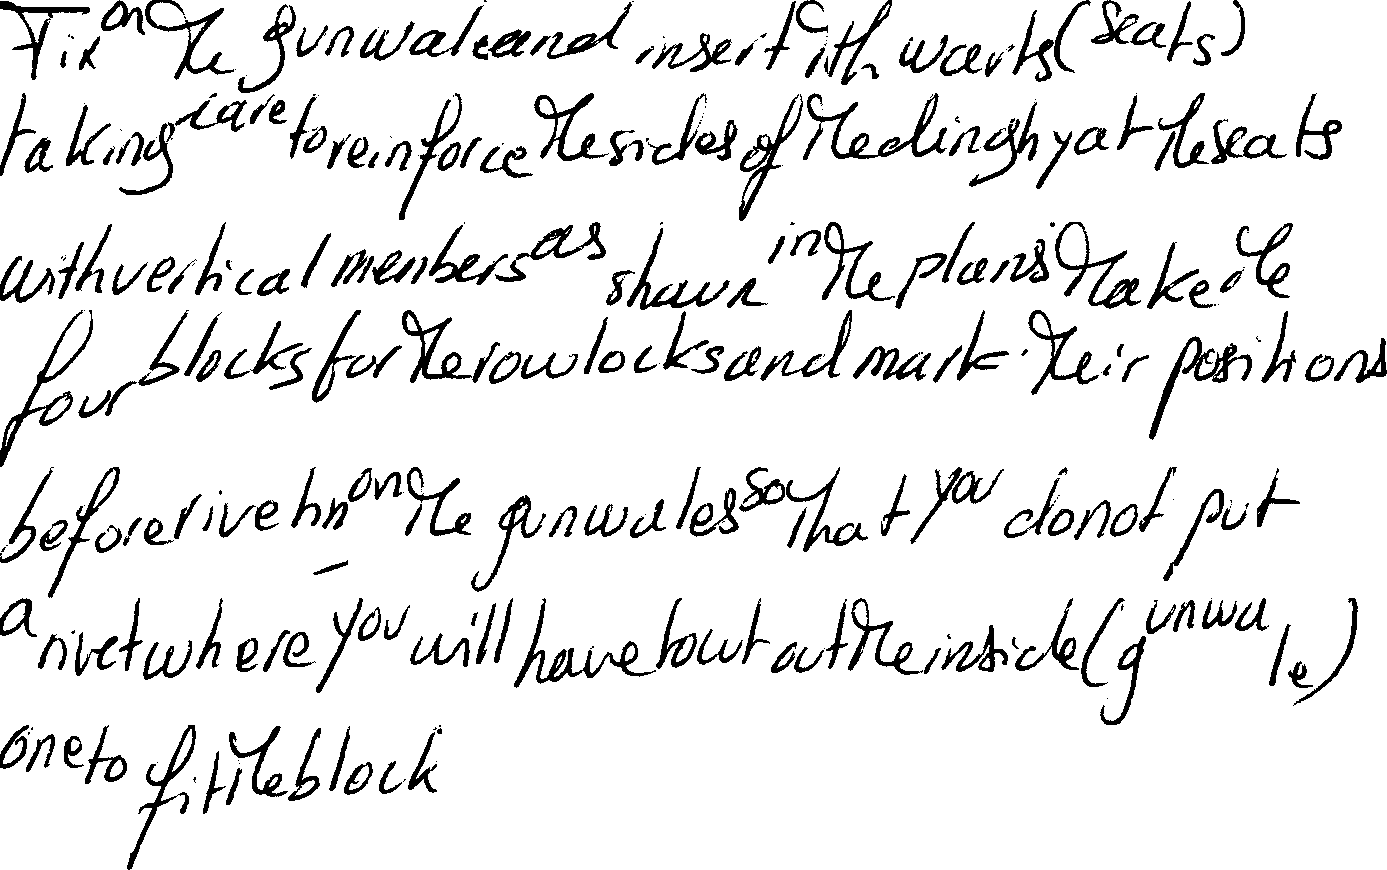 Fix on the gunwale and insert ith warts (seats)
taking care to reinforce the sides of the dinghy at the seats
with vertical members as shown in the plans Make the
four blocks for the rowlocks and mark their positions
before rivetin on the gunwales so that you do not put
a rivet where you will have to cut out the inside (gunwale)
one to fit the block